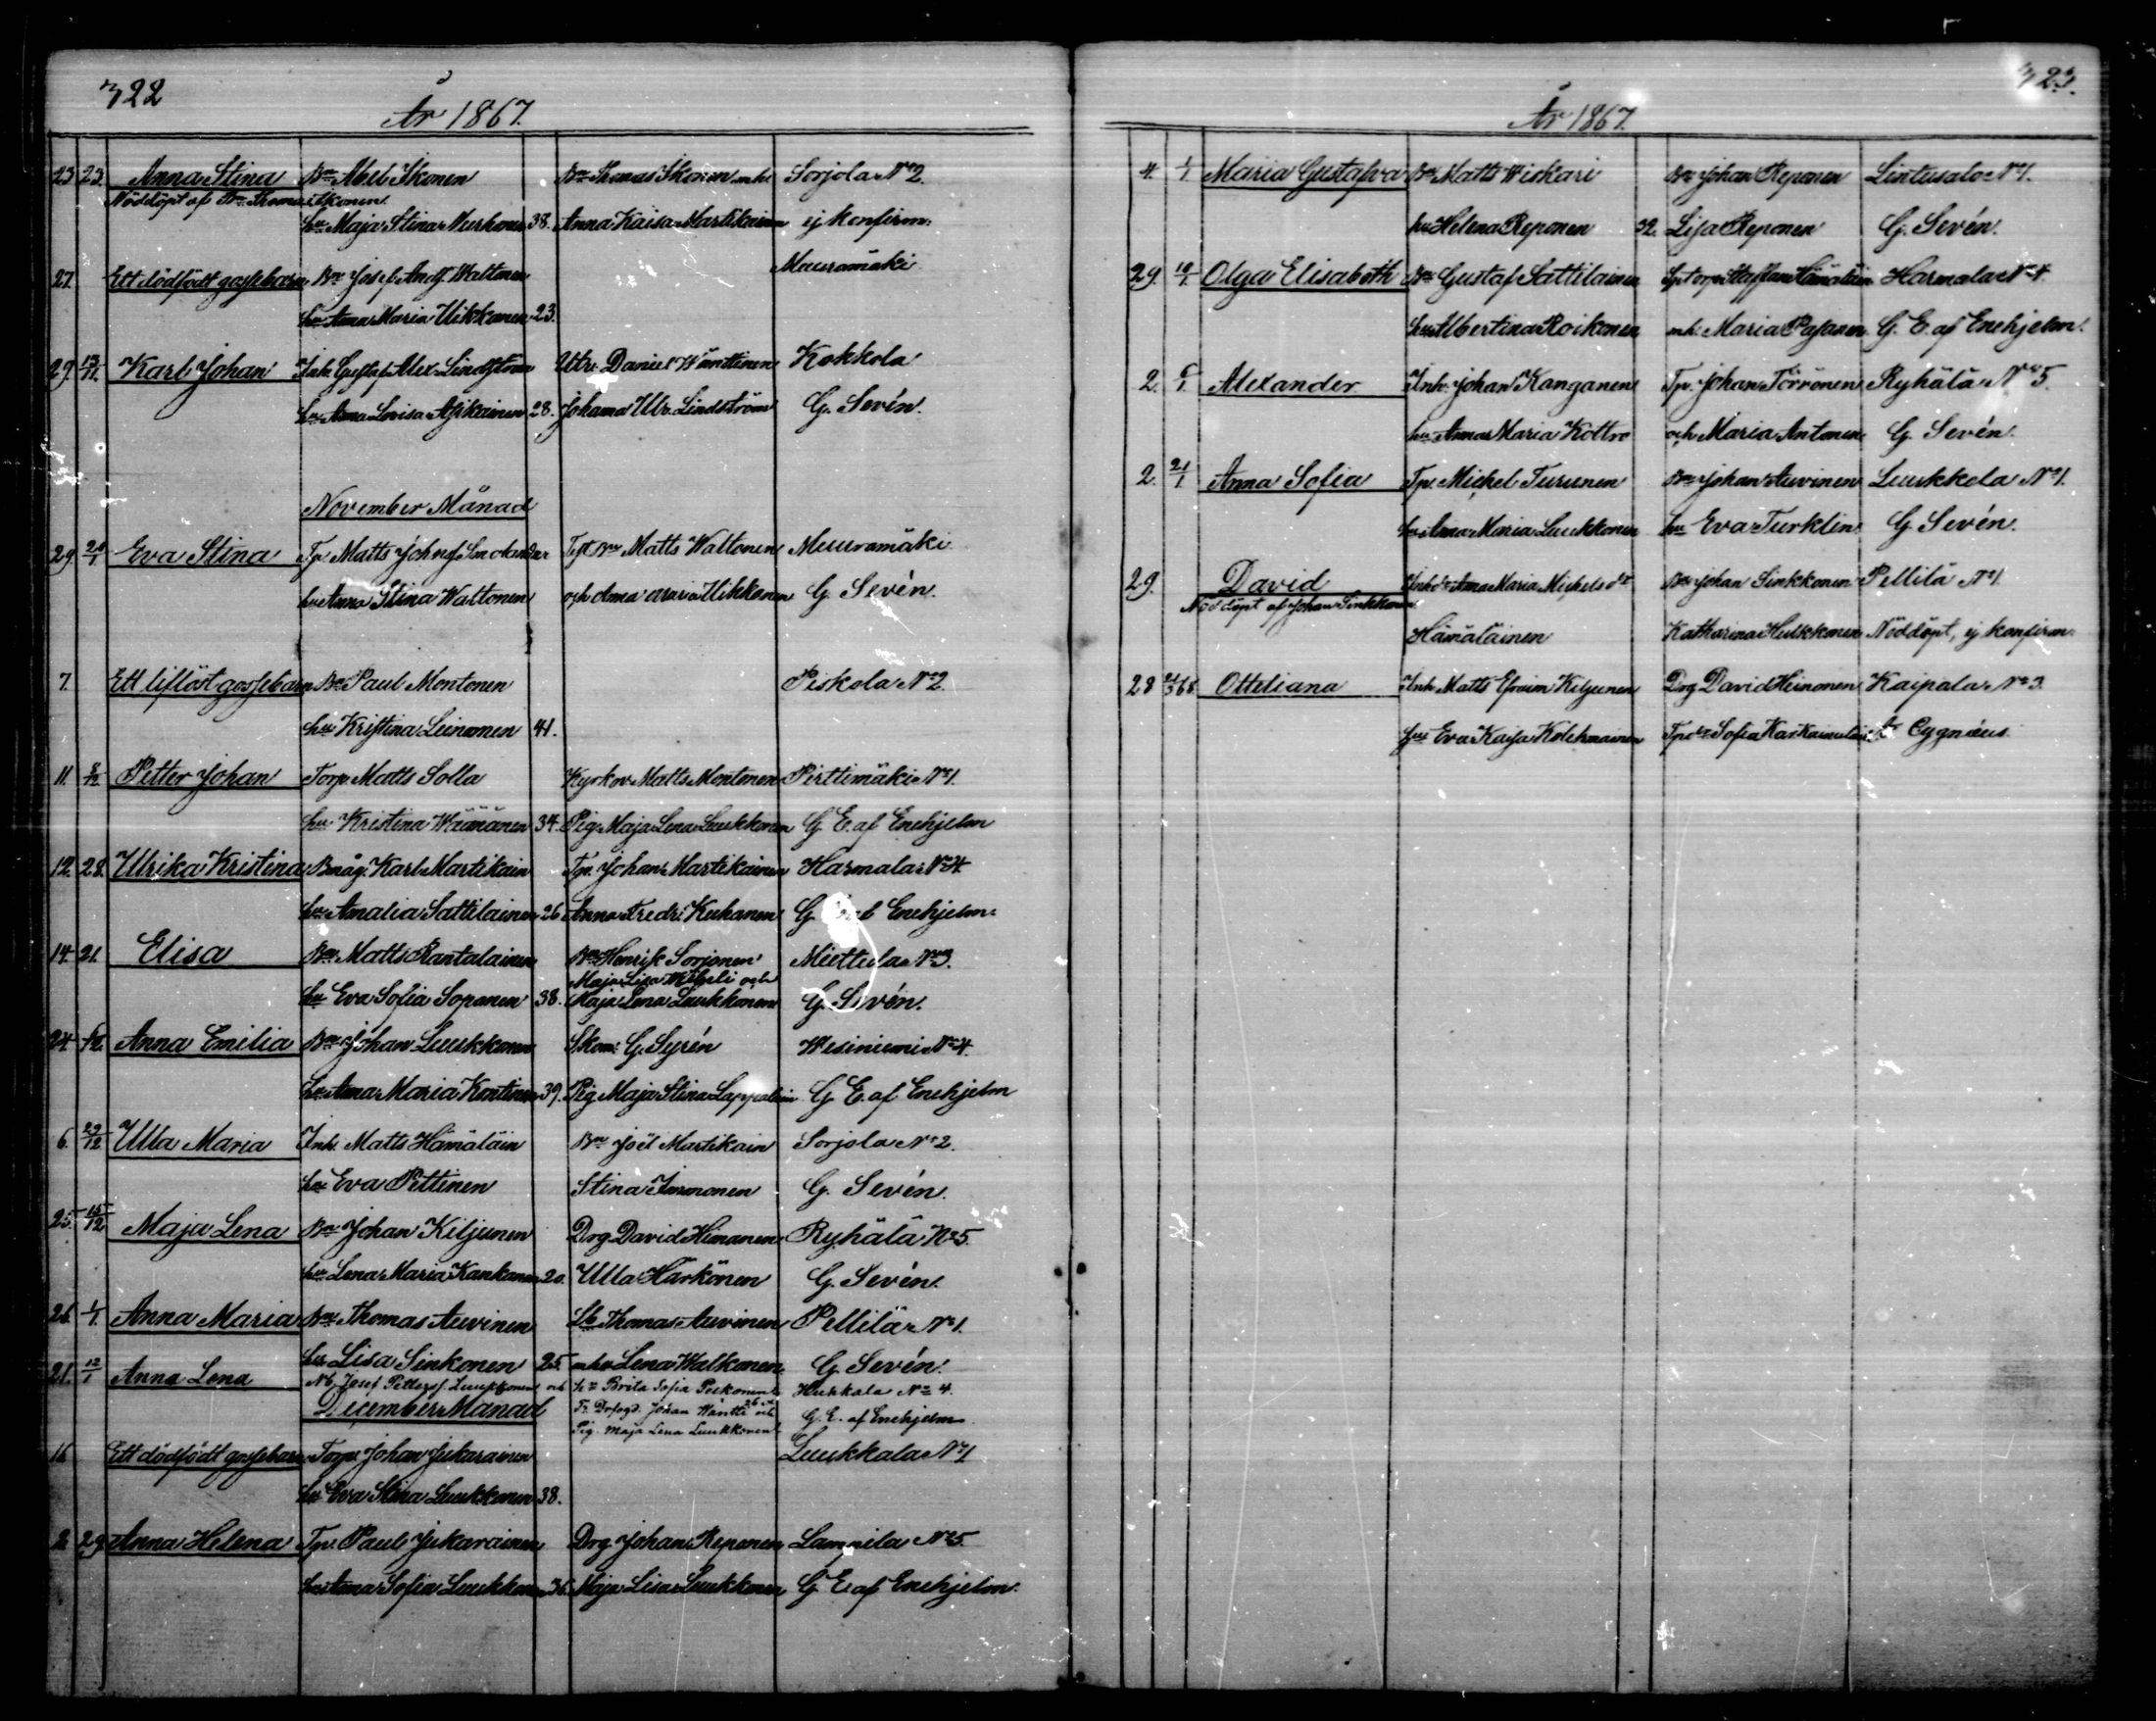 322
År 1867.
23 23. Anna Stina Bn Abel Ikonen Bn Thomas Ikonen m. hu Sorjola N° 2.
Nöddöpt af Bn Thomas Ikonen
hu Maja Stina Murhonen 38. Anna Kaisa Martikainen ej konfirm.
27. Ett dödfödt gossebarn Bn Josef Andf. Waltonen Muuramäki
hu Anna Maria Uikkonen 23.
29. 13/11. Karl Johan Inh. Gustaf Alex. Lindström Utr. Daniel Wänttinen Kokkola
hu Anna Lovisa Asikainen 28. Johanna Ulr. Lindström G. Sevén.
November Månad
29. 20/1 Eva Stina Tp. Matts Johnsf. Smolander Test. Bn Matts Waltonen Muuramäki
hu Anna Stina Waltonen och Anna Maria Uikkonen G. Sevén.
7. Ett liflöst gossebarn Bn Paul Montonen Piskola N° 2.
hu Kristina Leinonen 41.
11. 8/12 Petter Johan Torp. Matts Solla Kyrkov. Matts Montonen Pirttimäki N° 1.
hu Kristina Wäänänen 34. Pig. Maja Lena Luukkonen G. E. af Enehjelm
12. 28. Ulrika Kristina Bmåg. Karl Martikain Tp. Johan Martikainen Harmala N° 4
hu Amalia Sattilainen 26 Anna Fredr. Kukanen G. E. af Enehjelm
14. 21. Elisa Bn Matts Rantalainen Bn Henrik Sorjonen Miettula N° 3.
Maja Lisa och
hu Eva Sofia Soponen 38. Maja Lena Luukkonen G. Sevén.
24. 6/12. Anna Emilia Bn Johan Luukkonen Skom. G. Syrén Wesiniemi N° 4.
hu Anna Maria Kontinen 39. Pig. Maja Stina Lappalain G. E. af Enehjelm
6. 29/12 Ulla Maria Inh. Matts Hämäläin Bn Joël Martikain Sorjola N° 2.
hu Eva Pettinen Stina Immonen G. Sevén.
25. 15/12 Maja Lena Bn Johan Kiljunen Drg. David Heinonen Ryhälä N° 5.
hu Lena Maria Kankanen 20. Ulla Härkönen G. Sevén.
26. 1/1. Anna Maria Bn Thomas Auvinen Lb. Thomas Auvinen Pellilä N° 1.
hu Lisa Sinkonen 25. m. hu Lena Walkonen G. Sevén.
21. 12/1 Anna Lena Nb. Josef Pettersf. Luukkonen och hn Brita Sofia Pukonen Hukkala N° 4.
December Månad F. Drfogd. Johan Wäntti och G. E. af Enehjelm
Pig. Maja Lena Luukkonen
16. Ett dödfödt gossebarn Torp. Johan Jukarainen Luukkala N° 1
hu Eva Stina Luukkonen 38.
2. 29 Anna Helena Tp. Paul Jukarainen Drg. Johan Reponen Lampila N° 5
hu Anna Sofia Luukkonen 36. Maja Lisa Luukkonen G. E. af Enehjelm
323.
År 1867.
4. 1/1 Maria Gustafva Bn Matts Wiskari Bn Johan Reponen Lintusalo N° 1.
hu Helena Reponen 32. Lisa Reponen G. Sevén.
29. 10/1. Olga Elisabeth Bn Gustaf Sattilainen Sp. torp. Staffan Hämäläin Harmala N° 4.
hu Albertina Roikonen m. h. Maria Pasanen G. E. af Enehjelm.
2. 6/1 Alexander Inh. Johan Kanganen Tp. Johan Törrönen Ryhälä N° 5.
hu Anna Maria Kottro och Maria Antonen G. Sevén.
2. 21/1 Anna Sofia Tp. Michel Turunen Bn Johan Auvinen Luukkola N° 1.
hu Anna Maria Luukkonen hu Eva Turklin G. Sevén.
29. David Inh. dr Anna Maria Michelsdr Bn Johan Sinkkonen Pellilä N° 1.
Nöddöpt af Johan Sinkkonen
Hämäläinen Katharina Hulkkonen Nöddöpt, ej konfirm.
28 21/3 68. Otteliana Inh. Matts Efraim Kiljunen Drg. David Heinonen Kaipala N° 3.
hu Eva Kaisa Kolehmainen Tpdr Sofia Karkainulain A. Cygnæus